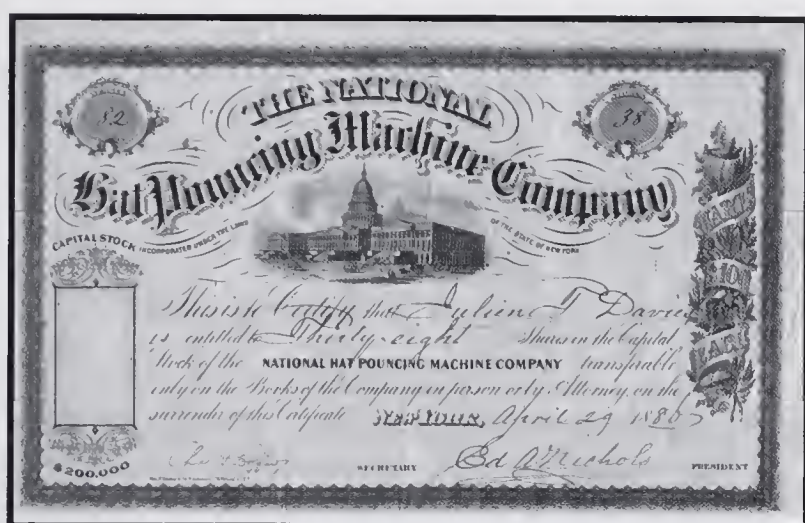 82
38
THE NATIONAL
Hat Pouncing Machine Company
CAPITAL STOCK
INCORPORATED UNDER THE LAWS
OF THE STATE OF NEW YORK
$100
EACH
This is to Certify that Julien T Davies
is entitled to Thirty-eight Shares in the Capital
Stock of the NATIONAL HAT POUNCING MACHINE COMPANY transferable
only on the Books of the Company in person or by Attorney, on the
surrender of this Certificate NEW YORK, April 29 1880
$200,000
SECRETARY
Ed A Nichols
PRESIDENT